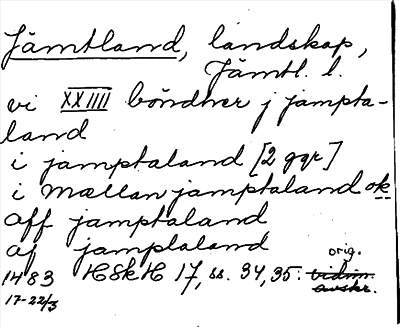 Jämtland, landskap,
Jämtl. l.
vi XXIIII böndher j jampta-
land
i jamptaland [2 ggr]
i mællan jamptaland ok
aff jamptaland
af jamptaland
1483 HSkH 17, ss. 34, 35. orig. vidim. avskr.
17-22/3